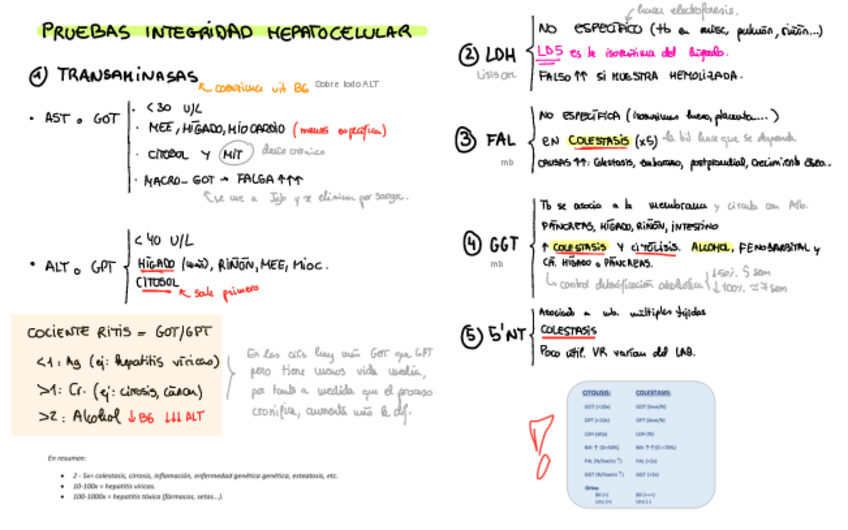 PRUEBAS INTEGRIDAD HEPATOCELULAR
① TRANSAMINASAS
coenzima vit B6 Sobre todo ALT
• AST o GOT
• <30 U/L
• MEE, HÍGADO, MIOCARDIO (menos específica)
• CITOSOL Y MIT daño crónico
• MACRO-GOT → FALSA ↑↑↑
se une a Ig y se elimina por sangre.
• ALT o GPT
<40 U/L
HÍGADO (más), RIÑÓN, MEE, MIOC.
CITOSOL
sale primero
COCIENTE RITIS = GOT/GPT
<1: Ag (ej: hepatitis víricas)
>1: Cr. (ej: cirrosis, cáncer)
>2: Alcohol ↓B6 ↓↓↓ ALT
En las hay más GOT que GPT
pero tiene menos vida media,
por tanto a medida que el proceso
cronifica, aumenta más la dif.
En resumen:
• 2 - 5x= colestasis, cirrosis, inflamación, enfermedad genética genética, esteatosis, etc.
• 10-100x = hepatitis víricas.
• 100-1000x = hepatitis tóxica (fármacos, setas...).
hacer electroforesis.
② LDH
Lisis cel.
NO ESPECÍFICO (tb en músc, pulmón, riñón...)
LD5 es la isoenzima del hígado.
FALSO ↑↑ SI MUESTRA HEMOLIZADA.
③ FAL
mb
NO ESPECÍFICA (isoenzimas hueso, placenta...)
EN COLESTASIS (x5) la bil hace que se desprenda
CAUSAS ↑↑: Colestasis, embarazo, postprandial, crecimiento óseo.
④ GGT
mb
Tb se asocia a la membrana y circula con Alb.
PÁNCREAS, HÍGADO, RIÑÓN, INTESTINO
↑ COLESTASIS Y CITÓLISIS. ALCOHOL, FENOBARBITAL y
CA. HÍGADO o PÁNCREAS.
control desintoxicación alcohólica
↓50% 5 sem
↓100% ≈ 7 sem
⑤ 5'NT
Asociado a mb. múltiples tejidos
COLESTASIS
Poco útil. VR varían del LAB.
CITOLISIS: COLESTASIS:
GOT (>10x) GOT (leve/N)
GPT (>10x) GPT (leve/N)
LDH (alta) LDH (N)
Bili ↑ (D>50%) Bili ↑↑ (D >70%)
FAL (N/ligero ↑) FAL (>2x)
GGT (N/ligero ↑) GGT (>2x)
Orina:
Bil (+) Bil (+++)
Uro (+) Uro (-)